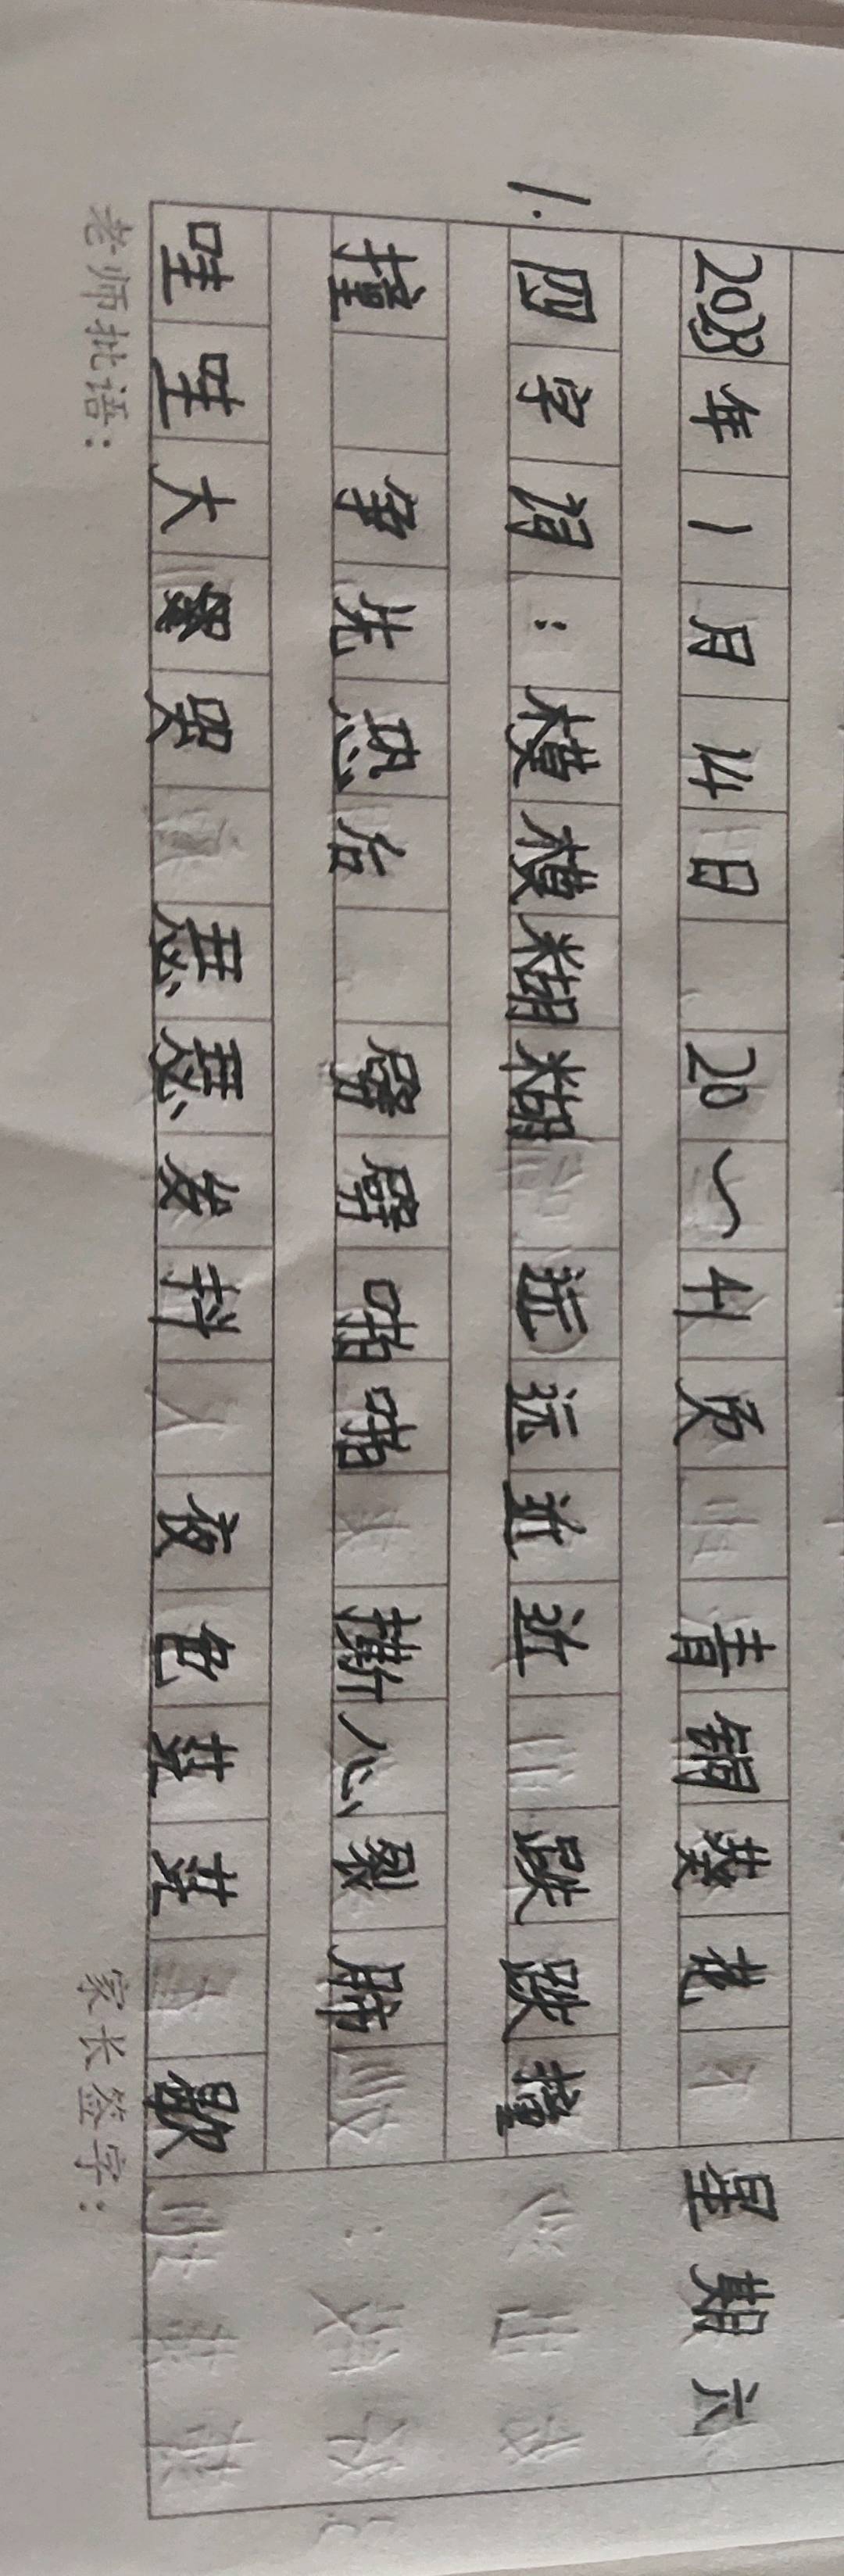 2023年1月14日 20~41页 青铜葵花 星期六
1.四字词:模模糊糊 远远近近 跌跌撞
撞 争先恐后 噼噼啪啪 撕心裂肺
哇哇大哭 瑟瑟发抖 夜色茫茫 歇
老师批语: 家长签字: